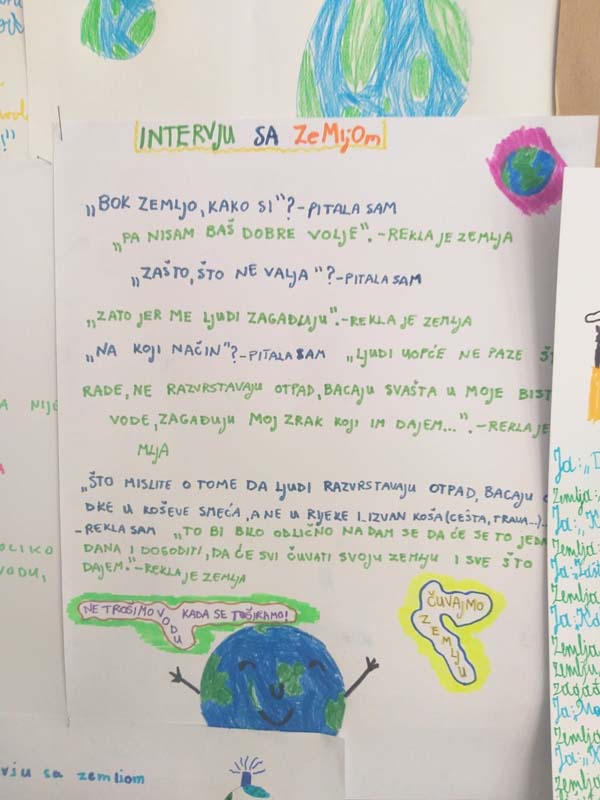 INTERVJU SA ZEMLJOM
„BOK ZEMLJO, KAKO SI“?-PITALA SAM
„PA NISAM BAŠ DOBRE VOLJE“.-REKLA JE ZEMLJA
„ZAŠTO, ŠTO NE VALJA“?-PITALA SAM
„ZATO JER ME LJUDI ZAGAĐUJU“.-REKLA JE ZEMLJA
„NA KOJI NAČIN“?-PITALA SAM „LJUDI UOPĆE NE PAZE
RADE, NE RAZVRSTAVAJU OTPAD, BACAJU SVAŠTA U MOJE
VODE, ZAGAĐUJU MOJ ZRAK KOJI IM DAJEM...“.-REKLA JE
MLJA
„ŠTO MISLITE O TOME DA LJUDI RAZVRSTAVAJU OTPAD, BACAJU
DKE U KOŠEVE SMEĆA, A NE U RIJEKE I IZVAN KOŠA (CESTA, TRAVA...)
-REKLA SAM „TO BI BILO ODLIČNO NADAM SE DA ĆE SE TO
DANA I DOGODITI, DA ĆE SVI ČUVATI SVOJU ZEMLJU I SVE ŠTO
DAJEM“.-REKLA JE ZEMLJA
NE TROŠIMO VODU KADA SE TUŠIRAMO!
ČUVAJMO
ZEMLJU
NIJE
VODU,
sa zemljom
Ja:
Zemlja:
Ja:
Zemlja:
Ja:
Zemlja
Ja:
Zemlja
zemlju,
Zemlja
Ja:
Zemlja